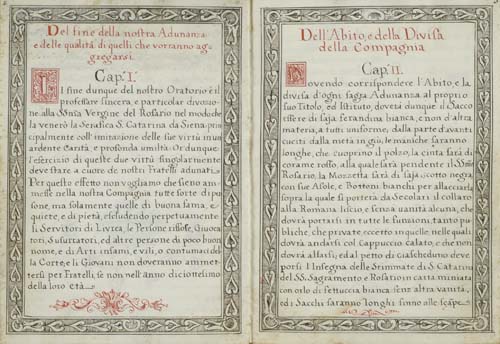 Del fine della nostra Adunanza
e delle qualità di quelli che vorranno ag,
gregarsi.
Cap. I.
Il fine dunque del nostro Oratorio è il
professare sincera, e particolar divozio,
ne alla SSma Vergine del Rosario nel modo che
la venerò la Serafica S. Catarina da Siena, prin
cipalmente coll'imitazione delle sue virtù mas
ardente Carità e profonda umiltà. Or dunque
l'esercizio di queste due virtù singolarmente
deve stare a cuore de nostri Fratelli adunati.
Per quello effetto non vogliamo che sieno am
messe nella nostra Compagnia tutte sorte di per
sone, ma solamente quelle di buona fama, e
quiete, e di pietà, escludendo perpetuamente
li Servitori di Livrea, le Persone rissose, Giuoca
tori, Susurratori, ed altre persone di poco buon
nome, e di Arti infami, e vili, o contumaci del
la Corte, e li Giovani non doveranno ammet
tersi per Fratelli, se non nell'anno diciottesimo
della loro età
Dell'Abito, e della Divisa
della Compagnia
Cap. II.
Dovendo corrispondere l'Abito, e la
divisa d'ogni sagra Adunanza al proprio
suo Titolo, ed Istituto, doverà dunque il Sacco
essere di saja ferandina bianca, e non d'altra
materia, a tutti uniforme, dalla parte d'avanti
cuciti dalla metà in giù, le maniche saranno
longhe, che cuoprino il polzo, la cinta sarà di
corame rosso, alla quale sarà pendente il SSmo
Rosario, la Mozzetta sarà di saja scotto negra
con sue Asole, e Bottoni bianchi per allacciarla
sopra la quale si porterà da Secolari il collaro
alla Romana liscio, e senza vanità alcuna, che
dovrà portarsi in tutte le funzioni, tanto pu
bliche, che private, eccetto in quelle, nelle quali
dovrà andarsi col Cappuccio calato, e che non
dovrà alzarsi, ed al petto di ciascheduno deve
porsi l'Insegna delle Stimmate di S. Catarina
del SS. Sagramento e Rosario in carta miniata
con orlo di fettuccia bianca senz'altra vanità,
ed i Sacchi saranno longhi sinno alle scarpe